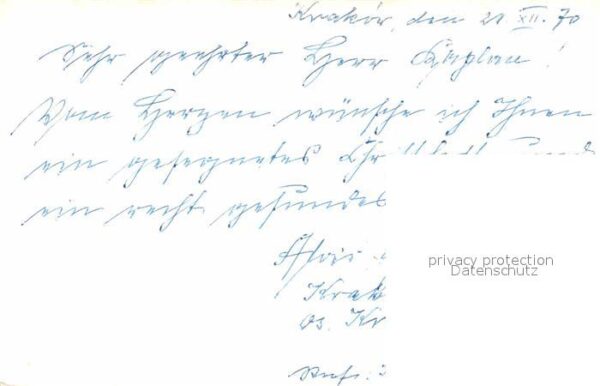 Kraków, den 21 XII. 70
Sehr geehrter Herr Kaplan!
Vom Herzen wünsche ich Ihnen
ein gesegnetes
ein recht gesundes
Alois
privacy protection
Datenschutz
Krak
os. Kr